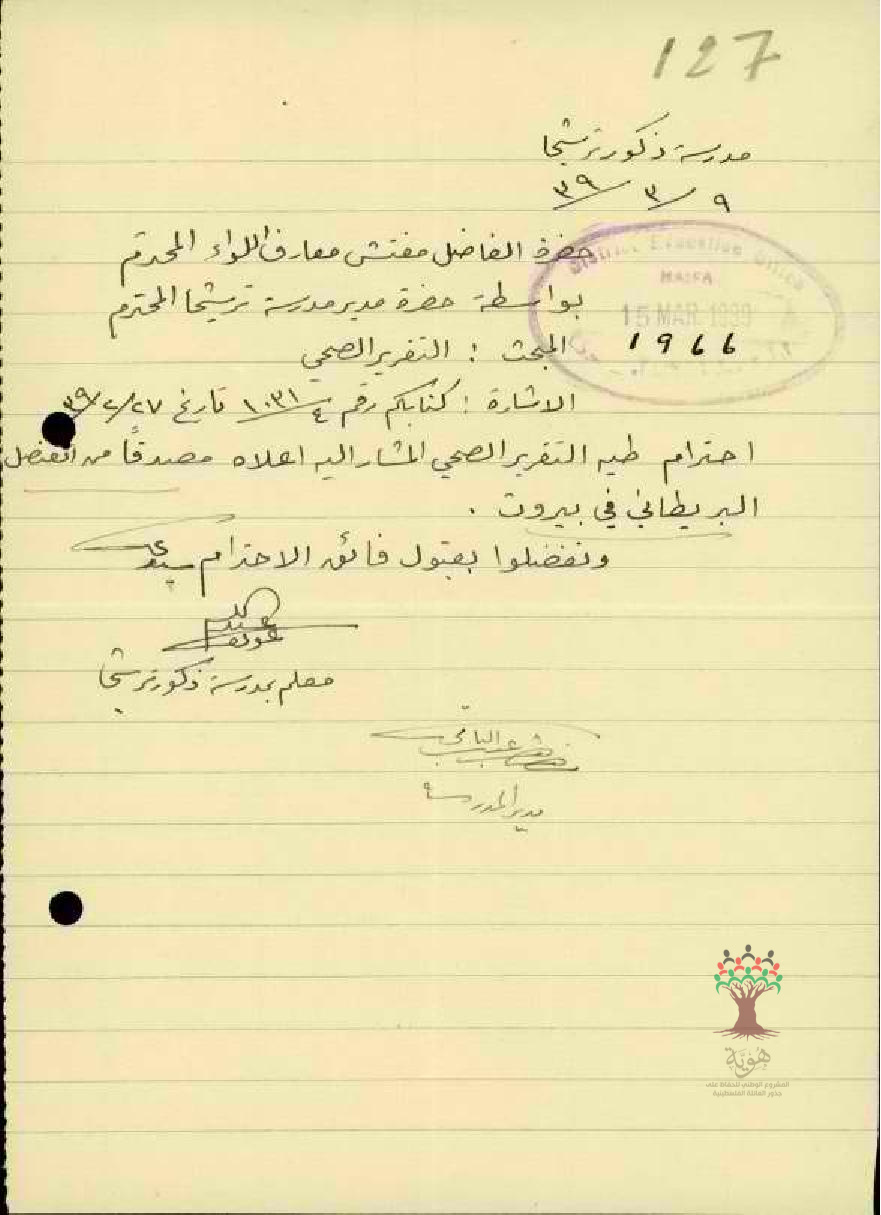 127
مدرسة ذكور ترشيحا
٩/٣/٣٩
حضرة الفاضل مفتش معارف اللواء المحترم
بواسطة حضرة مدير مدرسة ترشيحا المحترم
District Education Office
HAIFA
15 MAR 1939
1966
المبحث : التقرير الصحي
الاشارة : كتابكم رقم ١٠٣١/٤ تاريخ ٣٩/٢/٢٧
احترام طيه التقرير الصحي المشار اليه اعلاه مصدقاً من القنصل
البريطاني في بيروت .
وتفضلوا بقبول فائق الاحترام سيدي
معلم بمدرسة ذكور ترشيحا
مدير المدرسة
هُوِيَّة
المشروع الوطني للحفاظ على
جذور العائلة الفلسطينية